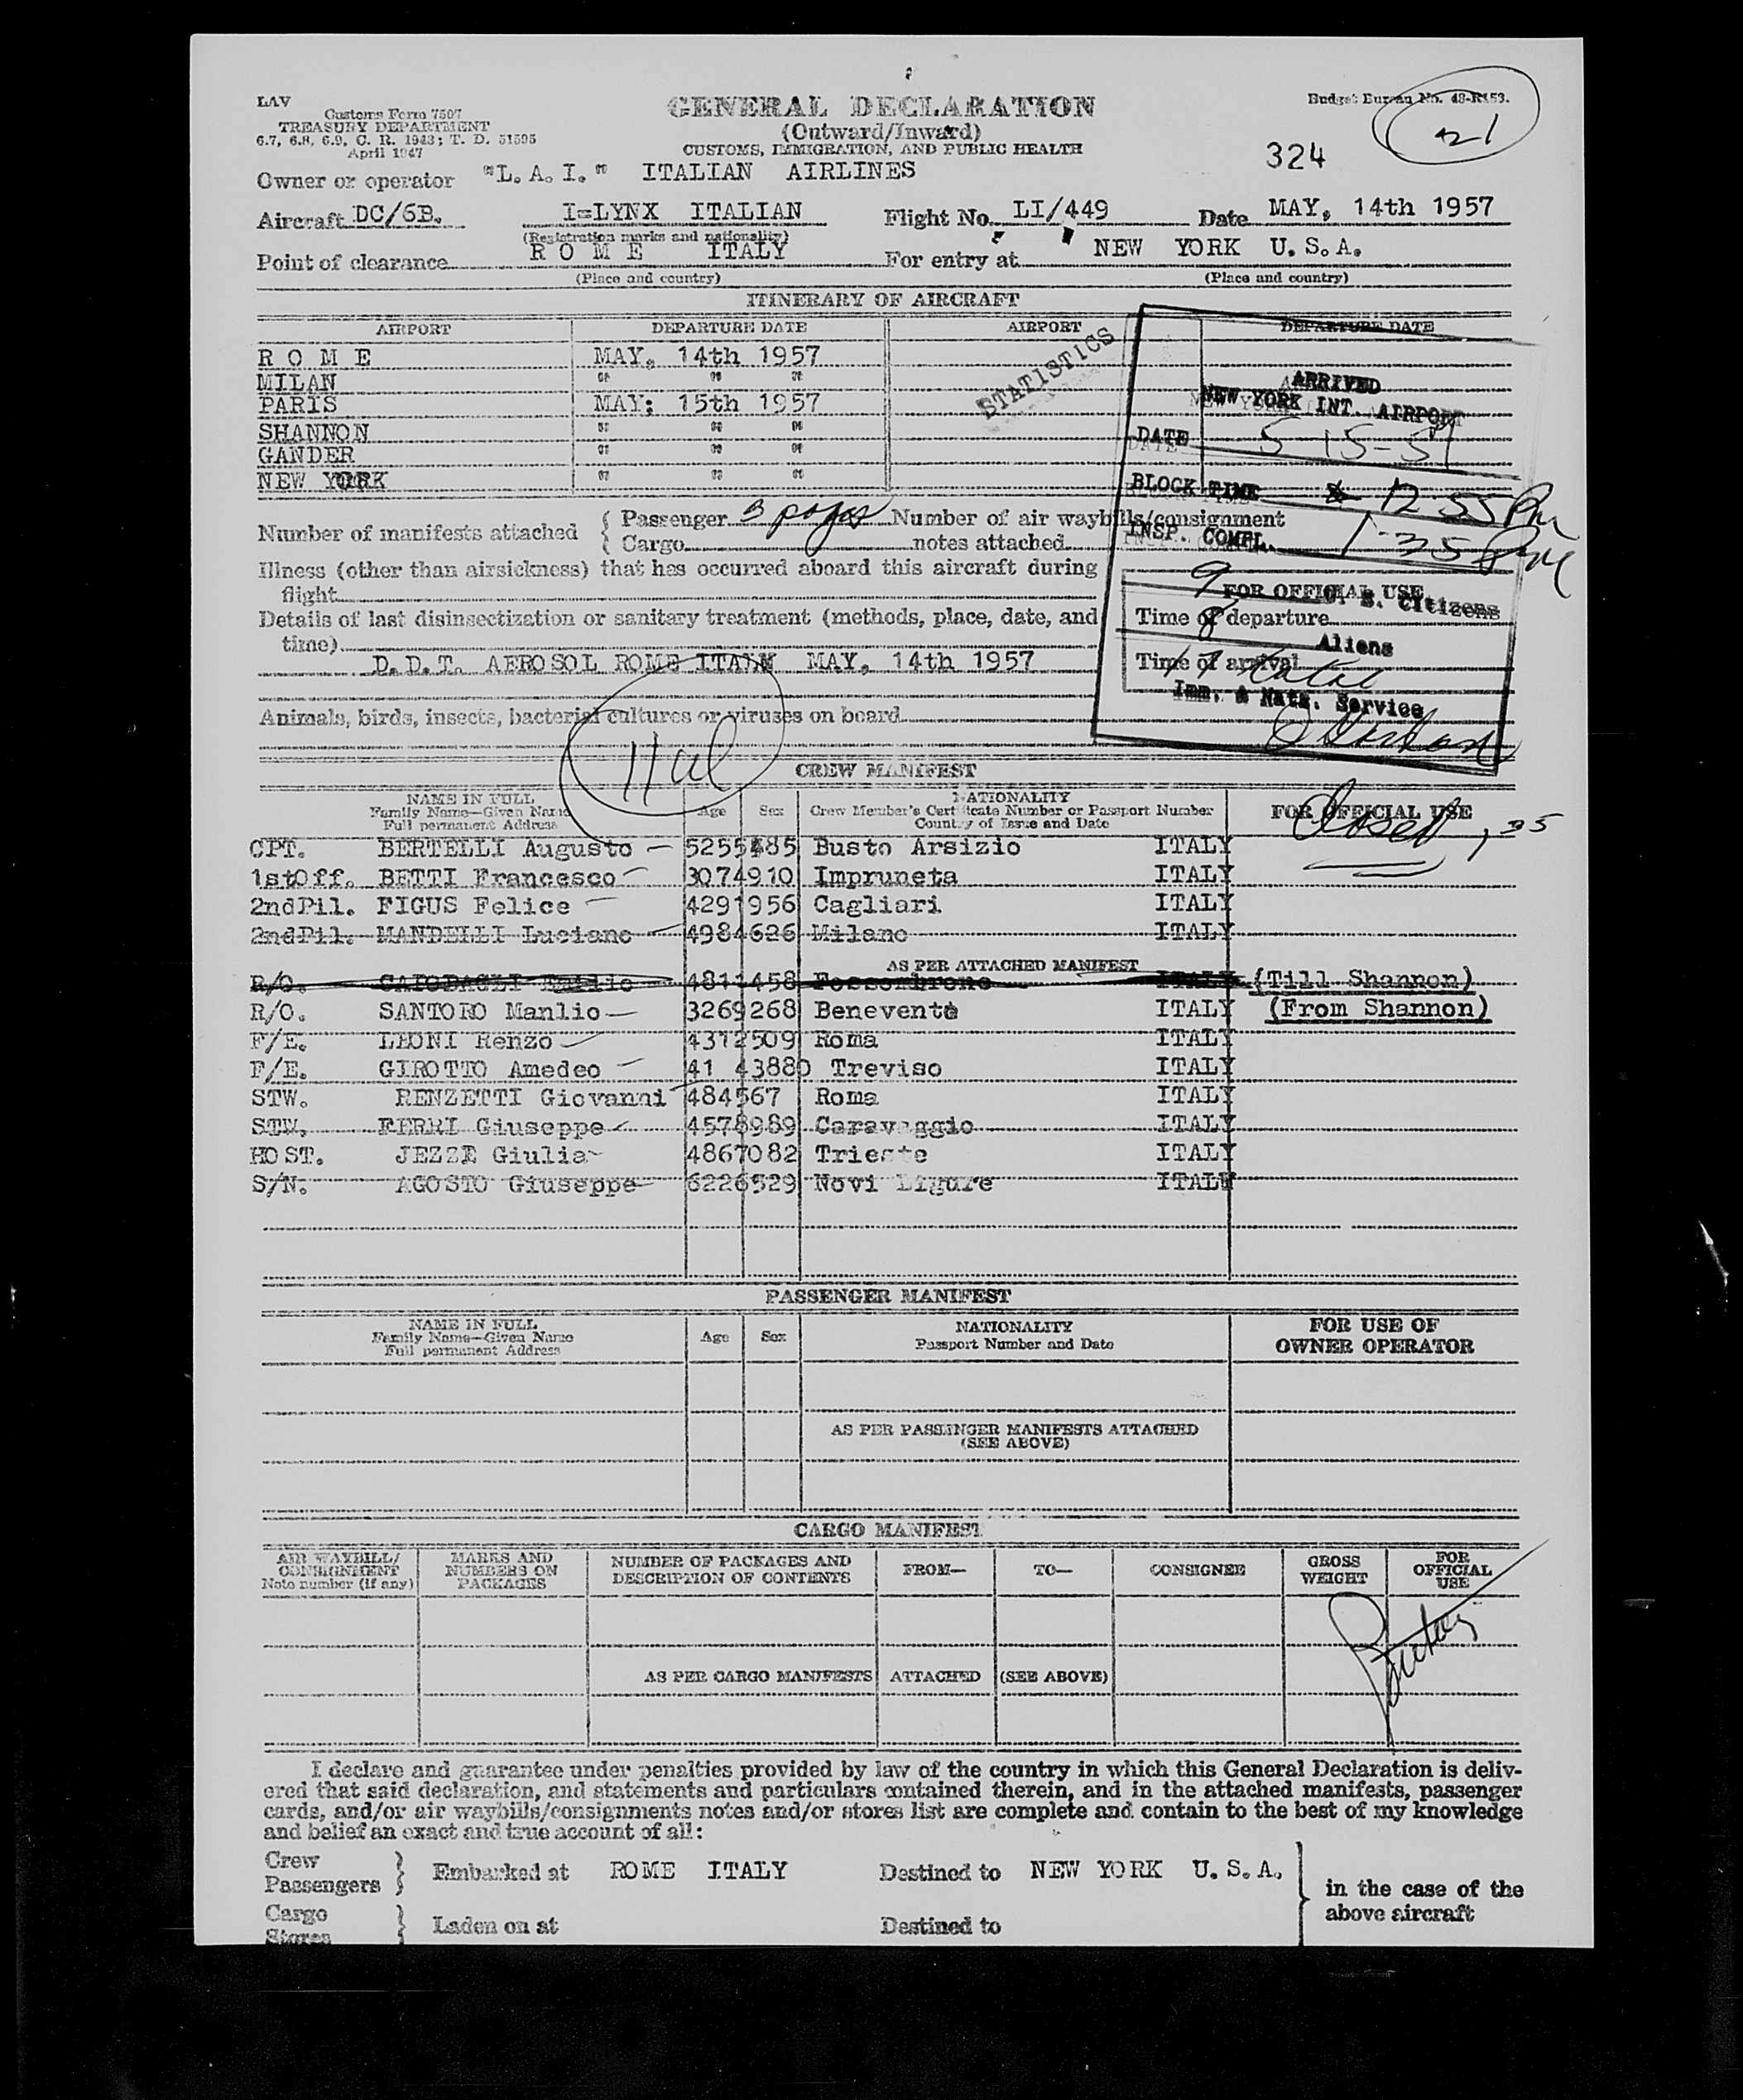 LAV
Customs Form 7507
TREASURY DEPARTMENT
6.7, 6.8, 6.9, C. R. 1943; T. D. 51595
April 1947
GENERAL DECLARATION
(Outward/Inward)
CUSTOMS, IMMIGRATION, AND PUBLIC HEALTH
Budget Bureau No. 48-R153.
21
324
Owner or operator "L. A. I." ITALIAN AIRLINES
Aircraft DC/6B. I=LYNX ITALIAN Flight No. LI/449 Date MAY, 14th 1957
(Registration marks and nationality)
Point of clearance R O M E ITALY For entry at NEW YORK U. S. A.
(Place and country) (Place and country)
ITINERARY OF AIRCRAFT
AIRPORT DEPARTURE DATE AIRPORT DEPARTURE DATE
R O M E MAY, 14th 1957
MILAN " " "
PARIS MAY; 15th 1957
SHANNON " " "
GANDER " " "
NEW YORK " " "
STATISTICS
ARRIVED
NEW YORK INT. AIRPORT
DATE 5-15-57
BLOCK TIME 12 55 Pm
INSP. COMPL. 1-35 Pm
Number of manifests attached { Passenger 3 pages Number of air waybills/consignment
{ Cargo notes attached
Illness (other than airsickness) that has occurred aboard this aircraft during
flight
Details of last disinsectization or sanitary treatment (methods, place, date, and
time)
D. D. T. AEROSOL ROME ITALY MAY, 14th 1957
9 U. S. Citizens
FOR OFFICIAL USE
Time of departure
8 Aliens
Time of arrival
17 total
Imm. & Natz. Service
Animals, birds, insects, bacterial cultures or viruses on board
CREW MANIFEST
NAME IN FULL
Family Name—Given Name
Full permanent Address
Age Sex
NATIONALITY
Crew Member's Certificate Number or Passport Number
Country of Issue and Date
FOR OFFICIAL USE
Closed
CPT. BERTELLI Augusto 5255485 Busto Arsizio ITALY
1stOff. BETTI Francesco 3074910 Impruneta ITALY
2ndPil. FIGUS Felice 4291956 Cagliari ITALY
2ndPil. MANDELLI Luciano 4984626 Milano ITALY
AS PER ATTACHED MANIFEST
R/O. 4811458 Fossombrone ITALY (Till Shannon)
R/O. SANTORO Manlio 3269268 Benevento ITALY (From Shannon)
F/E. LEONI Renzo 4372509 Roma ITALY
F/E. GIROTTO Amedeo 41 43880 Treviso ITALY
STW. RENZETTI Giovanni 484567 Roma ITALY
STW. FERRI Giuseppe 4578989 Caravaggio ITALY
HOST. JEZZE Giulia 4867082 Trieste ITALY
S/N. AGOSTO Giuseppe 6226529 Novi Ligure ITALY
PASSENGER MANIFEST
NAME IN FULL
Family Name—Given Name
Full permanent Address
Age Sex
NATIONALITY
Passport Number and Date
FOR USE OF
OWNER OPERATOR
AS PER PASSENGER MANIFESTS ATTACHED
(SEE ABOVE)
CARGO MANIFEST
AIR WAYBILL/
CONSIGNMENT
Note number (if any)
MARKS AND
NUMBERS ON
PACKAGES
NUMBER OF PACKAGES AND
DESCRIPTION OF CONTENTS
FROM— TO— CONSIGNEE
GROSS
WEIGHT
FOR
OFFICIAL
USE
AS PER CARGO MANIFESTS ATTACHED (SEE ABOVE)
I declare and guarantee under penalties provided by law of the country in which this General Declaration is deliv-
ered that said declaration, and statements and particulars contained therein, and in the attached manifests, passenger
cards, and/or air waybills/consignments notes and/or stores list are complete and contain to the best of my knowledge
and belief an exact and true account of all:
Crew
Passengers } Embarked at ROME ITALY Destined to NEW YORK U. S. A.
in the case of the
above aircraft
Cargo
Stores } Laden on at Destined to